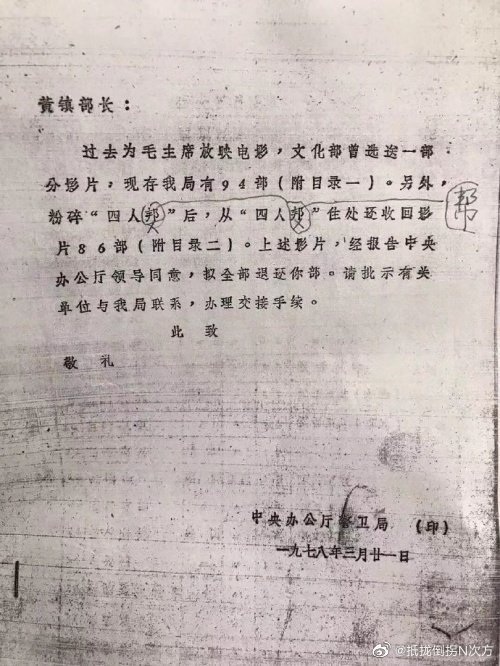 黄镇部长：
过去为毛主席放映电影，文化部曾选送一部
分影片，现存我局有94部（附目录一）。另外，
粉碎“四人邦”后，从“四人邦”住处还收回影
帮
片86部（附目录二）。上述影片，经报告中央
办公厅领导同意，拟全部退还你部。请批示有关
单位与我局联系，办理交接手续。
此致
敬礼
中央办公厅警卫局（印）
一九七八年三月廿一日
@抵拢倒拐N次方